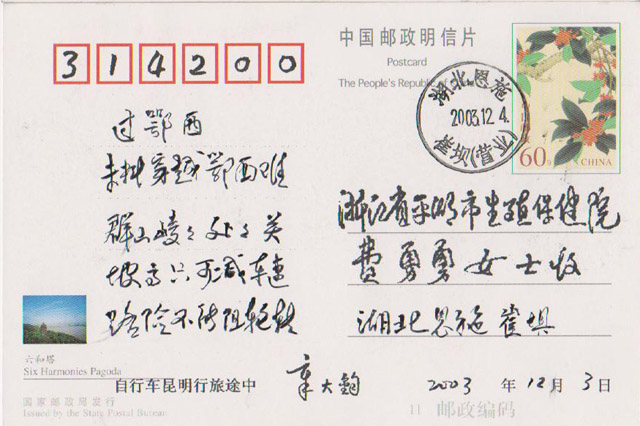 314200
中国邮政明信片
Postcard
The People's Republic of
湖北恩施
2003.12.4.
崔坝(营)
60分
CHINA
过鄂西
未料穿越鄂西难
群山峻々处々关
坡高只可减车速
路险不得阻轮转
浙江省平湖市生殖保健院
费勇勇女士收
湖北恩施崔坝
六和塔
Six Harmonies Pagoda
自行车昆明行旅途中
章大钧
2003 年 12 月 3 日
国家邮政局发行
Issued by the State Postal Bureau
邮政编码